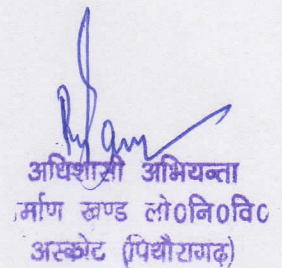 अधिशासी अभियन्ता
र्माण खण्ड लो०नि०वि०
अस्कोट (पिथौरागढ़)